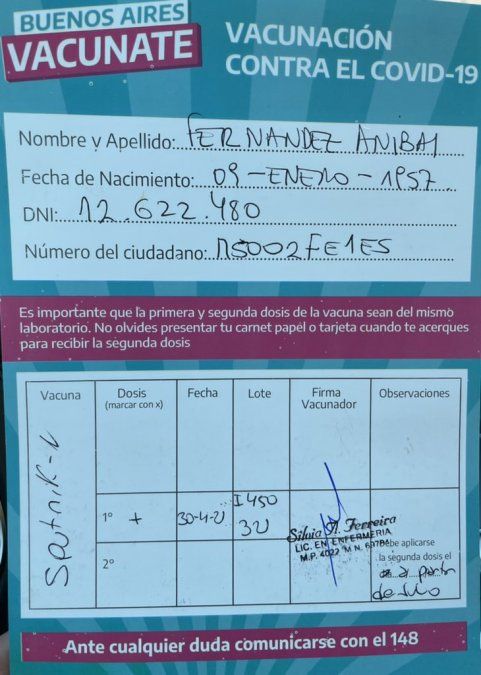 BUENOS AIRES
VACUNATE
VACUNACIÓN
CONTRA EL COVID-19
Nombre y Apellido: FERNANDEZ ANIBAL
Fecha de Nacimiento: 09-ENERO-1957
DNI: 12.622.480
Número del ciudadano: NS002FE1ES
Es importante que la primera y segunda dosis de la vacuna sean del mismo
laboratorio. No olvides presentar tu carnet papel o tarjeta cuando te acerques
para recibir la segunda dosis
Vacuna Dosis Fecha Lote Firma Observaciones
(marcar con x) Vacunador
Sputnik
1º + 30-4-21 I450
Silvia A. Ferreira
LIC. EN ENFERMERIA
M.P. 4022 M.N.
Debe aplicarse
la segunda dosis el
2º
a partir
de Julio
Ante cualquier duda comunicarse con el 148